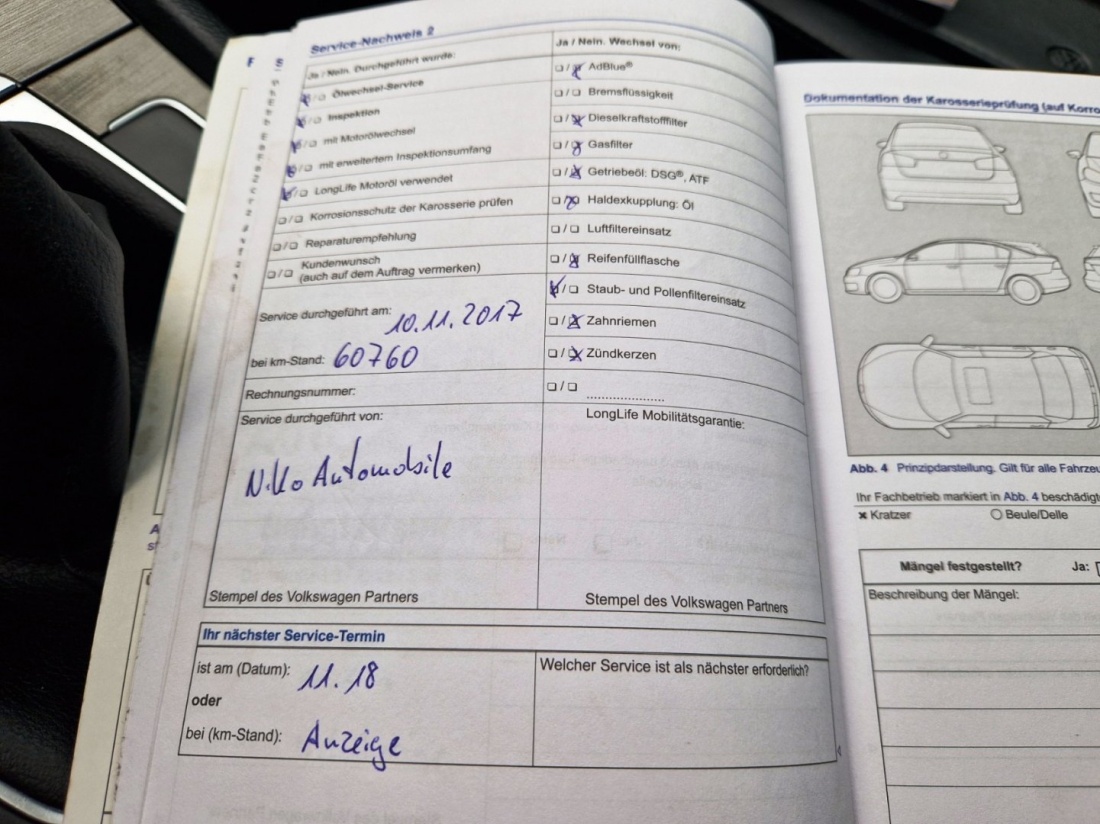 Service-Nachweis 2
Ja / Nein. Durchgeführt wurde:
Ölwechsel-Service
Inspektion
mit Motorölwechsel
mit erweitertem Inspektionsumfang
LongLife Motoröl verwendet
Korrosionsschutz der Karosserie prüfen
Reparaturempfehlung
Kundenwunsch
(auch auf dem Auftrag vermerken)
Service durchgeführt am:
10.11.2017
bei km-Stand: 60760
Rechnungsnummer:
Service durchgeführt von:
Niko Automobile
Stempel des Volkswagen Partners
Ja / Nein. Wechsel von:
AdBlue®
Bremsflüssigkeit
Dieselkraftstofffilter
Gasfilter
Getriebeöl: DSG®, ATF
Haldexkupplung: Öl
Luftfiltereinsatz
Reifenfüllflasche
Staub- und Pollenfiltereinsatz
Zahnriemen
Zündkerzen
LongLife Mobilitätsgarantie:
Stempel des Volkswagen Partners
Ihr nächster Service-Termin
ist am (Datum): 11. 18
oder
bei (km-Stand): Anzeige
Welcher Service ist als nächster erforderlich?
Dokumentation der Karosserieprüfung (auf Korro
Abb. 4 Prinzipdarstellung. Gilt für alle Fahrzeu
Ihr Fachbetrieb markiert in Abb. 4 beschädigte
× Kratzer
Beule/Delle
Mängel festgestellt? Ja:
Beschreibung der Mängel: